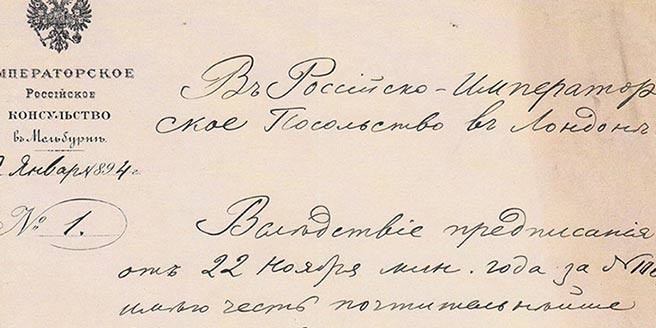 ИМПЕРАТОРСКОЕ
Россійское
КОНСУЛЬСТВО
въ Мельбурнѣ.
Января 1894 г.
№ 1.
Въ Россійско-Император
ское Посольство въ Лондонѣ
Вслѣдствіе предписанія
отъ 22 Ноября мин. года за №
имѣю честь почтительнѣйше